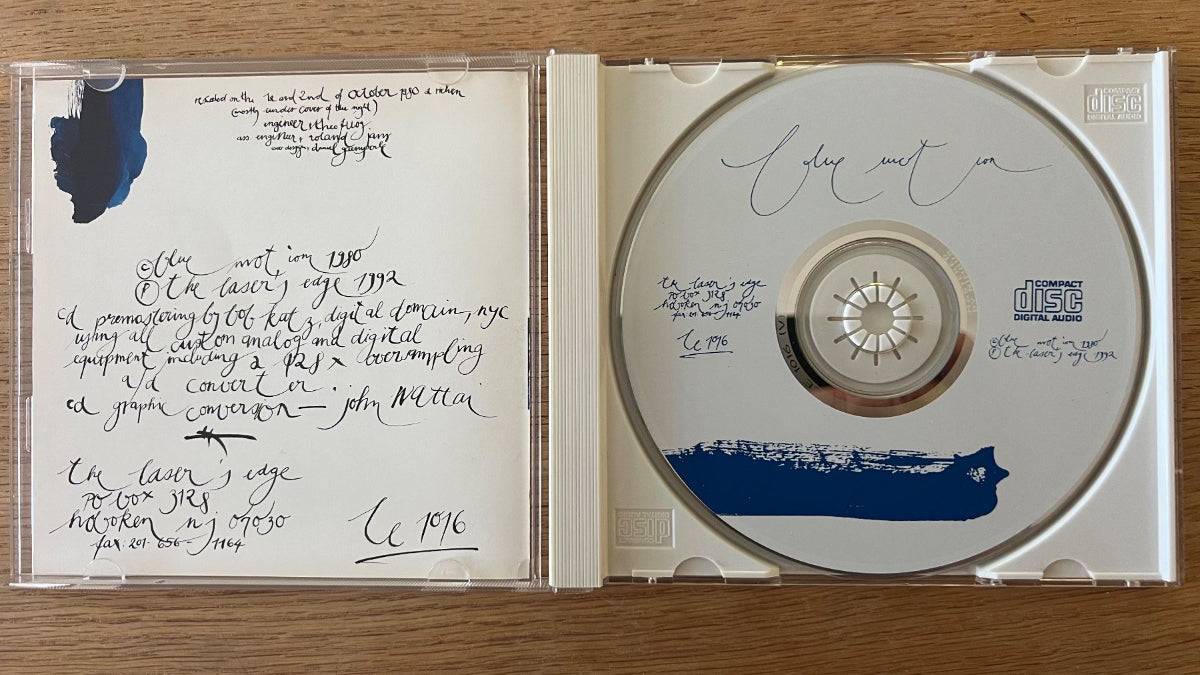 recorded on the 1st and 2nd of october 1980 a
(mostly under cover of the night)
engeneer
ass. engeneer, roland
cover design, daniel
© blue mot ion 1980
℗ the laser's edge 1992
cd premastering by bob katz, digital domain, nyc
using all custom analog and digital
equipment including a 128x oversampling
a/d convert er.
cd graphic conversion — john
the laser's edge
po box 3128
hoboken nj 07030
fax: 201-656-1164
le 1016
blue mot ion
the laser's edge
po box 3128
hoboken nj 07030
fax 201-656-1164
le 1016
COMPACT
disc
DIGITAL AUDIO
© blue mot ion 1980
℗ the laser's edge 1992
COMPACT
disc
DIGITAL AUDIO
COMPACT
disc
DIGITAL AUDIO